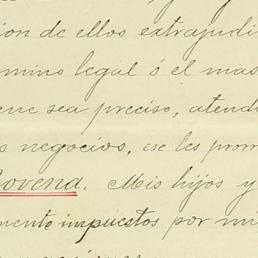 ion de ellos extrajudi
mino legal ó el mas
ene sea preciso, atendi
s negocios, ese les pror
ovena. Mis hijos y
mente impuestos por mi